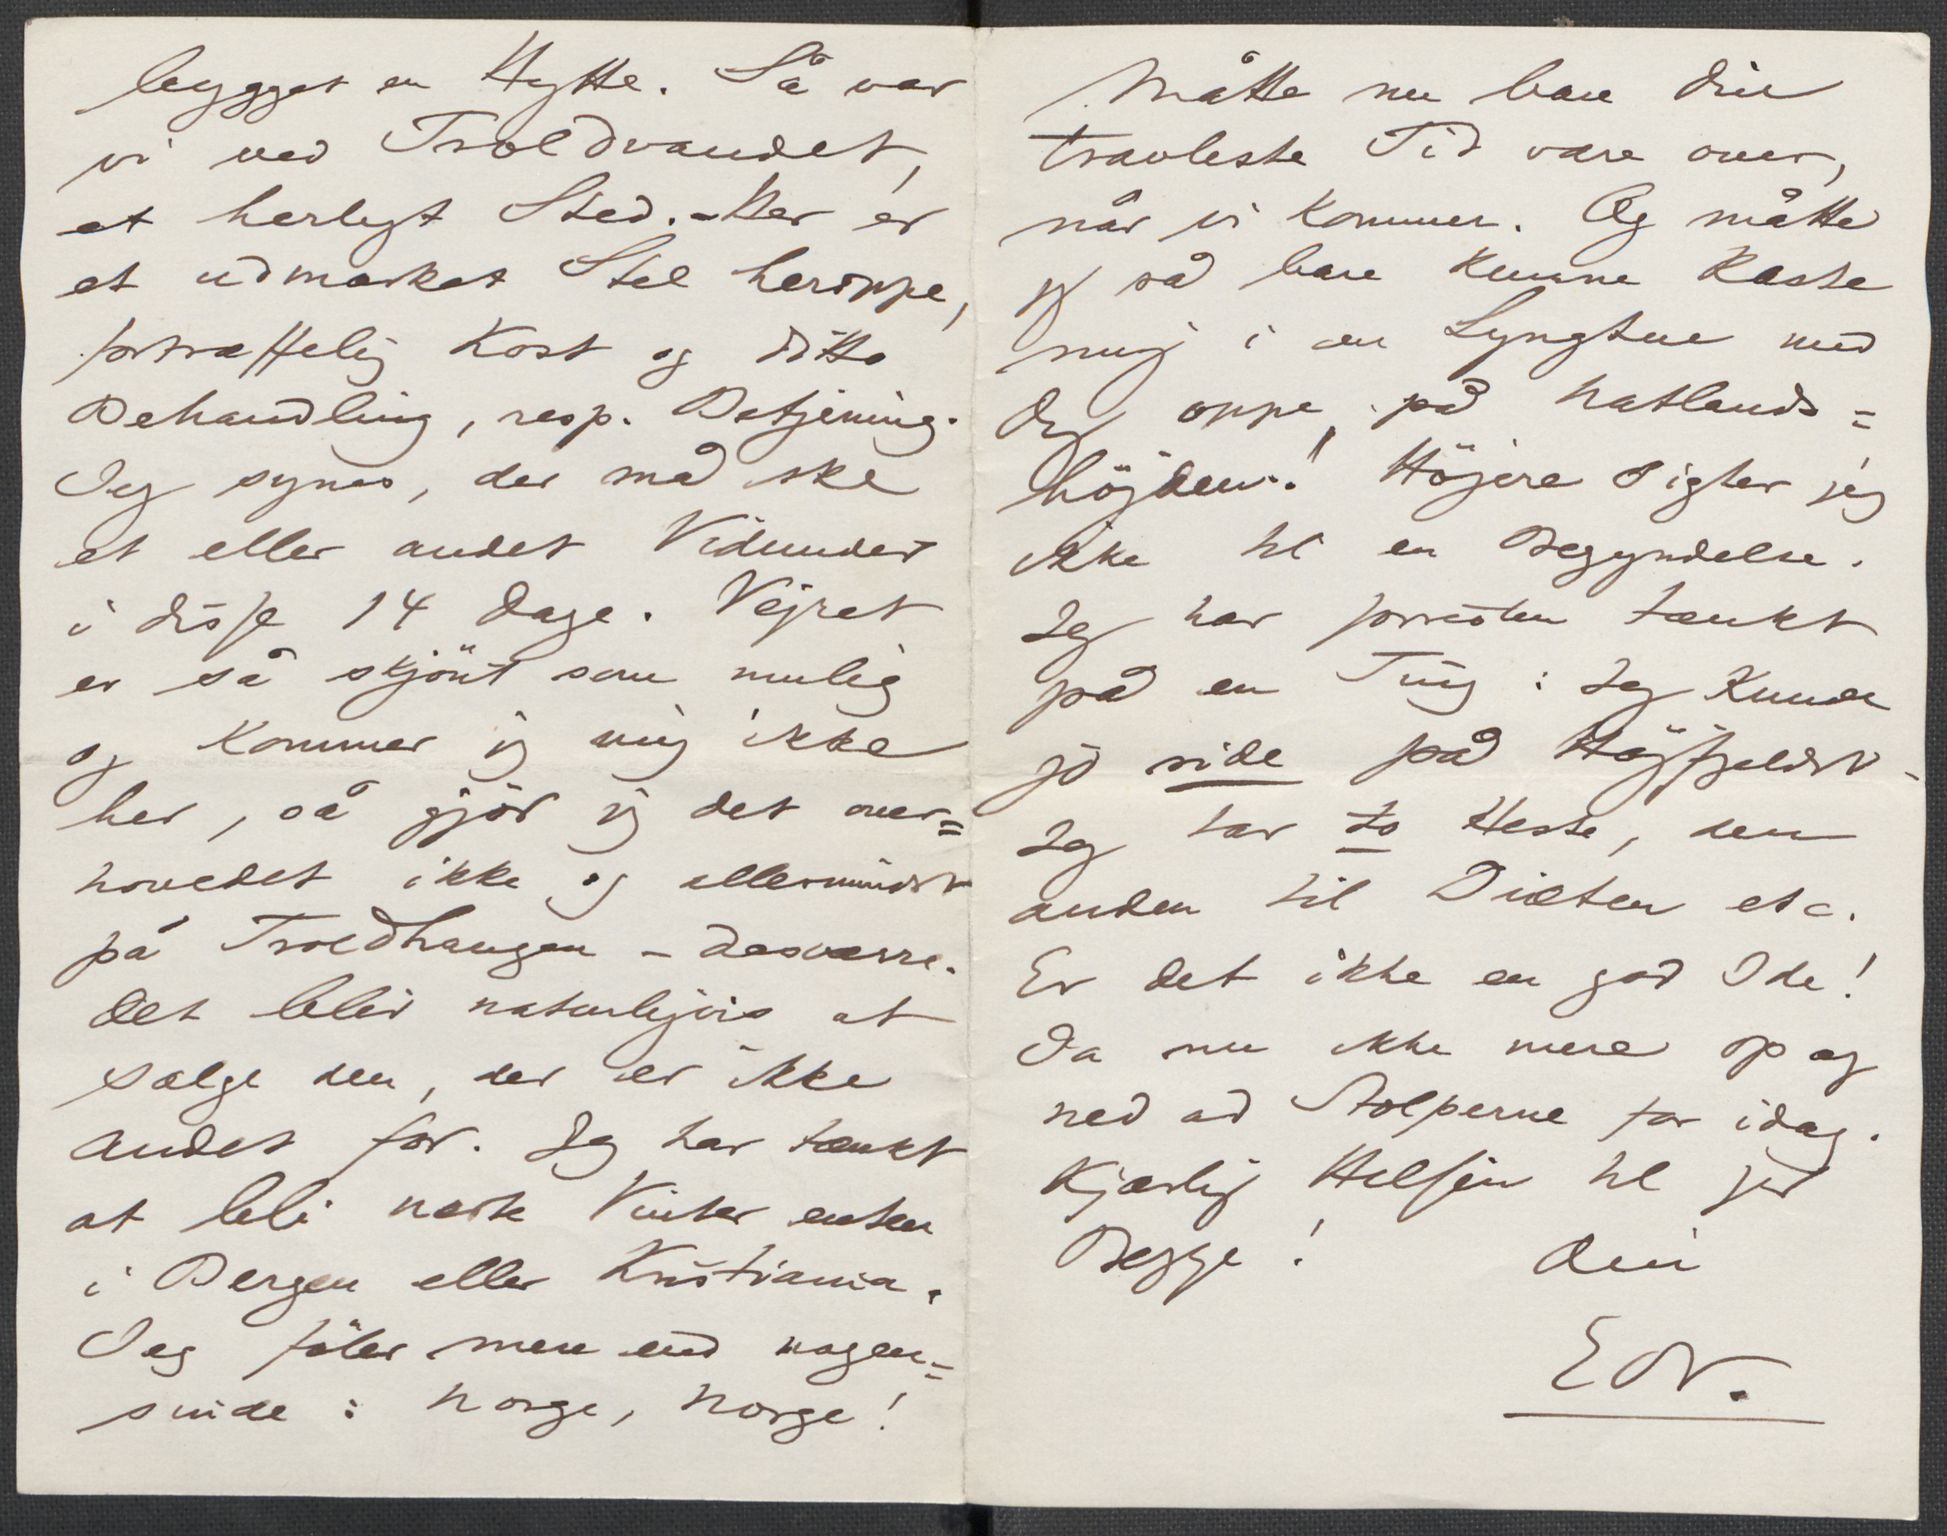 bygget en Hytte. Så var
vi ved Troldvandet,
et herligt Sted. – Her er
et udmærket Stel heroppe,
fortræffelig Kost og ditto
Behandling, resp. Betjening.
Jeg synes, der må ske
et eller andet Vidunder
i disse 14 Dage. Vejret
er så skjönt som mulig
og kommer jeg mig ikke
her, så gjör jeg det over=
hovedet ikke og allermindst
på Troldhaugen – desværre.
Det blir naturligvis at
sælge den, der er ikke
andet for. Jeg har tænkt
at bli næste Vinter enten
i Bergen eller Kristiania.
Jeg föler mere end nogen=
sinde: Norge, Norge!
Måtte nu bare din
travleste Tid være over,
når vi kommer. Og måtte
jeg så bare kunne kaste
mig i en Lyngtue med
dig oppe på Natlands=
höjden! Höjere sigter jeg
ikke til en Begyndelse.
Jeg har forresten tænkt
på en Ting: Jeg kunde
jo ride på Höjfjeldet.
Jeg tar to Heste, den
anden til Diæten etc.
Er det ikke en god Ide!
Ja nu ikke mere op og
ned ad Stolperne for idag.
Kjærlig Hilsen til jer
Begge! Din
Edv.